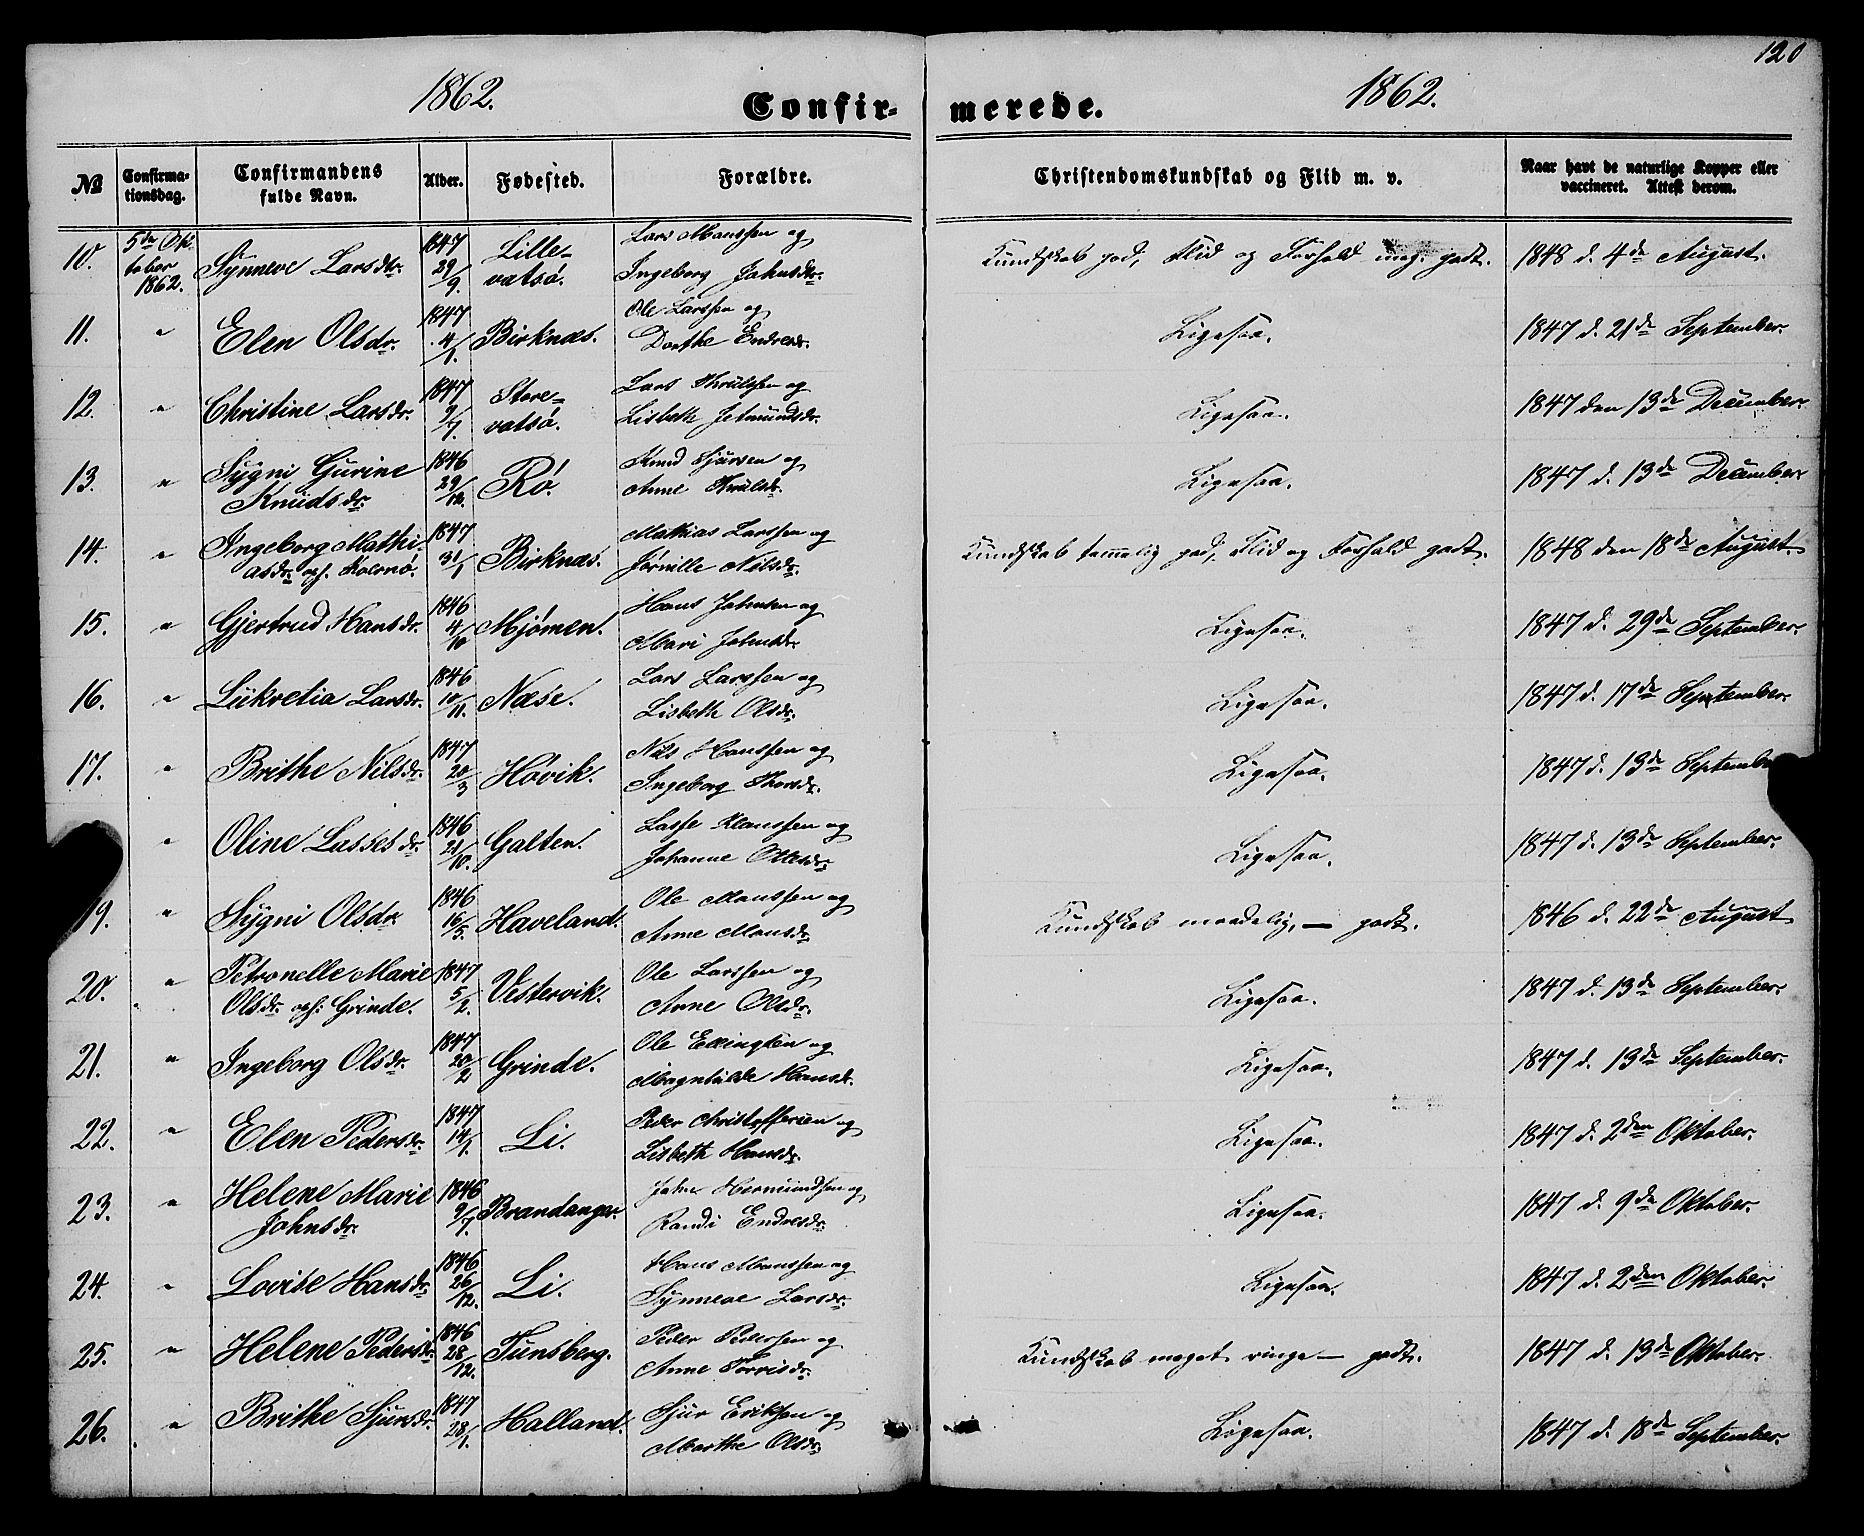 120
1862.
1862.
Confir- merede.
№
Confirma-
tionsdag.
Confirmandens
fulde Navn.
Alder.
Fødested.
Forældre.
Christendomskundskab og Flid m. v.
Naar havt de naturlige Kopper eller
vaccineret. Attest derom.
10. 5de Ok- Synneve Larsdtr. 1847 Lille- Lars Manssen og Kundskab god, Flid og Forhold meg. godt. 1848 d. 4de August.
tober 29/9. vatsö. Ingeborg Jahnsdtr.
1862.
11. " Elen Olsdr. 1847 Birknæs. Ole Larssen og Ligesaa. 1847 d. 21de September.
4/1. Dorthe Endresdr.
12. " Christine Larsdr. 1847 Store- Lars Ligesaa. 1847 den 13de December.
9/7. vatsö. Lisbeth Jetmundsdr.
13. " Sygni Gurine 1846 Rö. Knud Sjursen og Ligesaa. 1847 d. 13de December.
Knudsdr. 29/12. Anne
14. " Ingeborg Mathi- 1847 Birknæs. Mathias Larssen og Kundskab temmelig god, Flid og Forhold godt. 1848 den 18de August.
asdr. 31/1 Nilsdr.
15. " Gjertrud Hansdr. 1846 Mjömen. Hans Johnsen og Ligesaa. 1847 d. 29de September.
4/10 Mari Johnsdr.
16. " Lukretia Larsdr. 1846 Næse. Lars Larssen og Ligesaa. 1847 d. 17de September.
10/11. Lisbeth Olsdr.
17. " Brithe Nilsdr. 1847 Hövik. Nils Hanssen og Ligesaa. 1847 d. 13de September
20/3 Ingeborg
" Oline Lassesdr. 1846 Galten. Lasse Klaussen og Ligesaa. 1847 d. 13de September.
21/10. Johanne
19. " Sygni Olsdr. 1846 Haveland. Ole Manssen og Kundskab maadelig, — godt. 1846 d. 22de August
16/5. Anne Mansdr.
20. " Petronelle Marie 1847 Vestervik. Ole Larssen og Ligesaa. 1847 d. 13de September.
Olsdr. Grinde. 5/2. Anne Olsdr.
21. " Ingeborg Olsdr. 1847 Grinde. Ole og Ligesaa. 1847 d. 13de September.
20/2 Magnhilde Hansdr.
22. " Elen Pedersdr. 1847 Li. Peder Christoffersen og Ligesaa. 1847 d. 2den Oktober.
14/1. Lisbeth Hansdr.
23. " Helene Marie 1846 Brandanger. John Hermundsen og Ligesaa. 1847 d. 9de Oktober.
Johnsdr. 9/7. Randi Endresdr.
24. " Lovise Hansdr. 1846 Li. Hans Manssen og Ligesaa. 1847 d. 2den Oktober.
26/12. Synneve Larsdr.
25. " Helene Pedersdr. 1846 Tunsberg. Peder Pedersen og Kundskab meget ringe — godt. 1847 d. 13de Oktober.
28/12. Anne
26. " Brithe Sjursdr. 1847 Halland. Sjur Eriksen og Ligesaa. 1847 d. 18de September.
28/1. Marthe Olsdr.